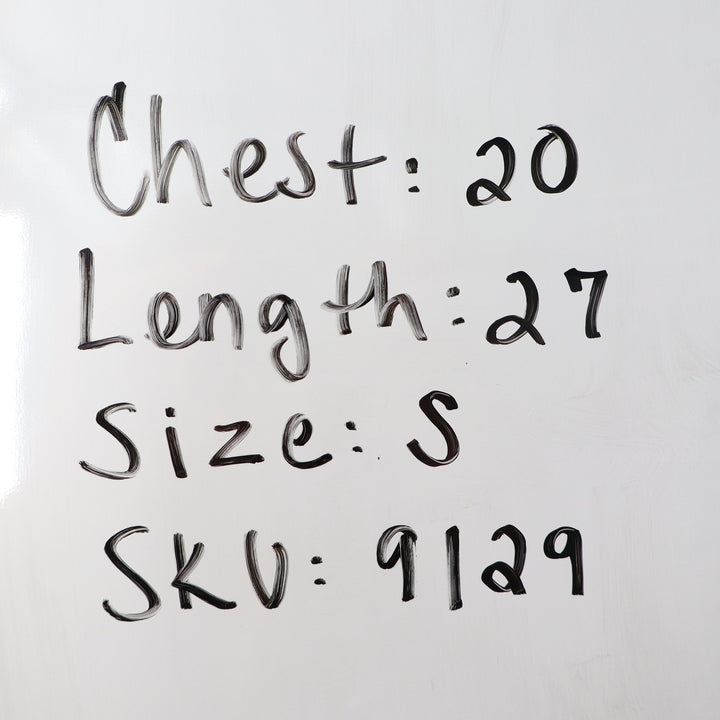 Chest: 20
Length: 27
Size: S
SKU: 9129